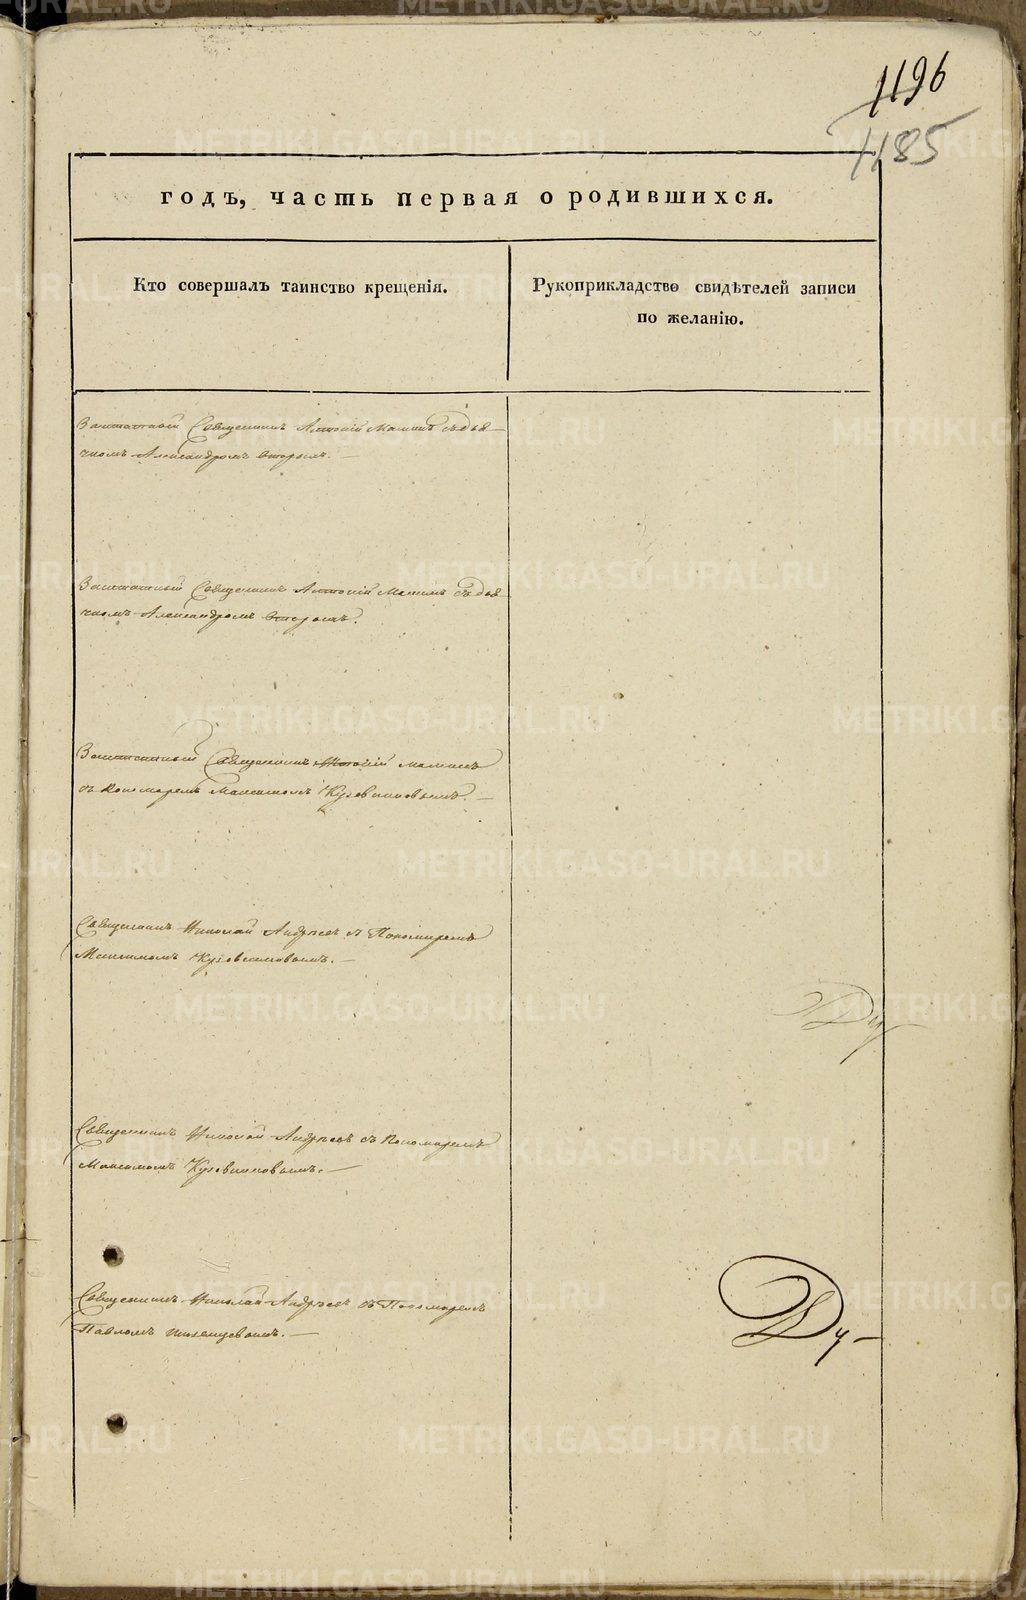 1196
1185
годъ, часть первая о родившихся.
Кто совершалъ таинство крещенія.
Рукоприкладство свидѣтелей записи
по желанію.
Заштатный Священникъ Антоній Маминъ съ дья-
чкомъ Александромъ Вторымъ. —
Заштатный Священникъ Антоній Маминъ съ дья-
чкомъ Александромъ Вторымъ.
Заштатный Священникъ Антоній Маминъ
съ Пономаремъ Максимомъ Кузовниковымъ. —
Священникъ Николай Андреевъ съ Пономаремъ
Максимомъ Кузовниковымъ. —
Священникъ Николай Андреевъ съ Пономаремъ
Максимомъ Кузовниковымъ. —
Священникъ Николай Андреевъ съ Пономаремъ
Павломъ
Ду-
METRIKI.GASO-URAL.RU